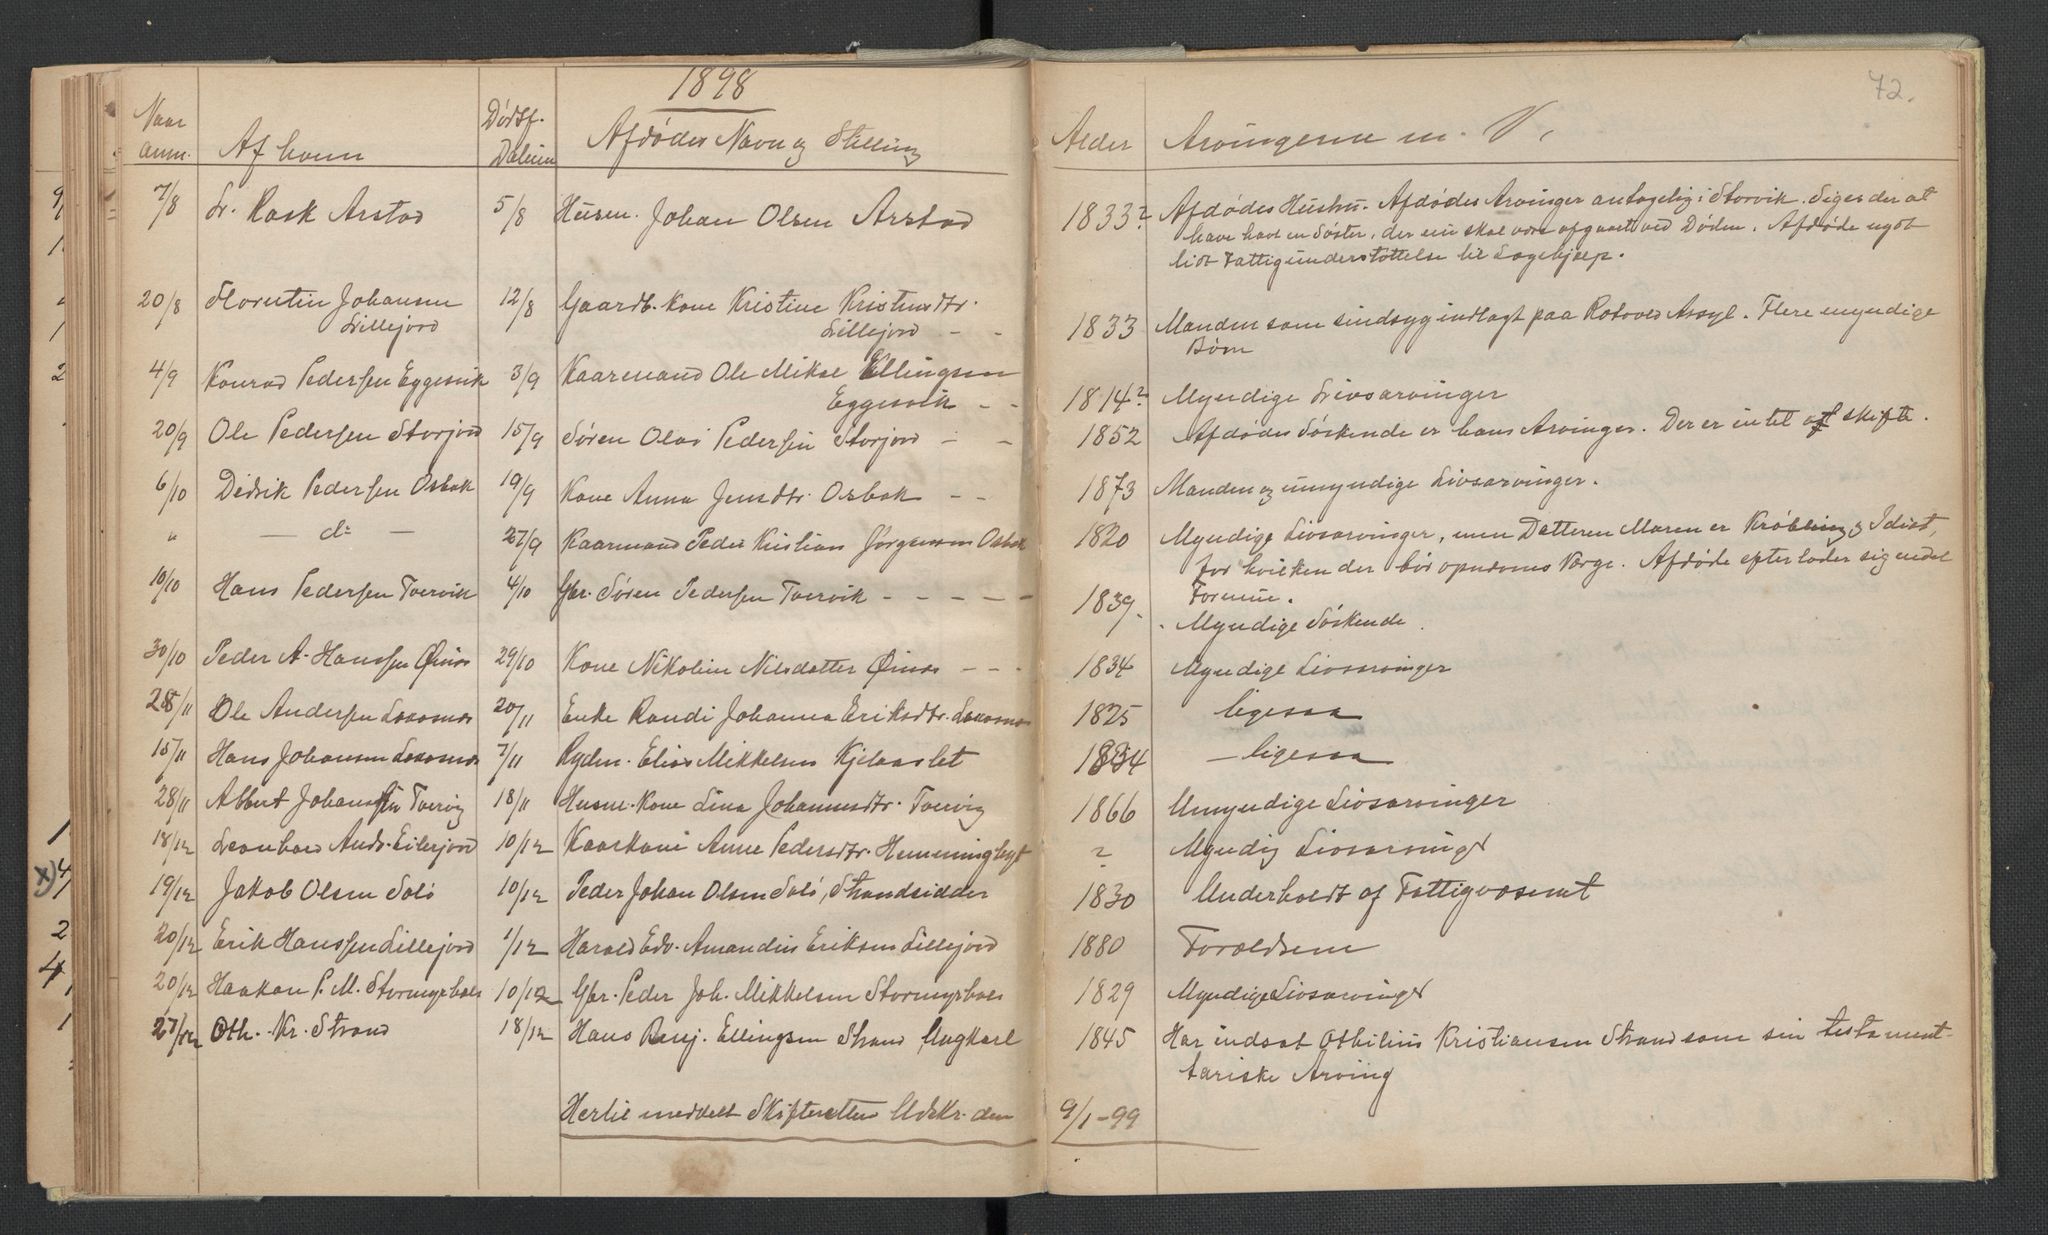 1898
72.
Naar anm. Af hvem Dødsf. Datum Afdødes Navn og Stilling Alder Arvingerne m. V.
7/8 Lr. Rask Arstad 5/8 Husm. Johan Olsen Arstad 1833? Afdødes Hustru. Afdødes Arvinger antagelig i Storvik. Siges der at
have havt en Søster, der nu skal være afgaaet ved Døden. Afdøde nyøt
lidt Fattigunderstøttelse til Lægehjælp.
20/8 Florentin Johansen 12/8 Gaardb. Kone Kristine Kristensdtr.
Lillejord Lillejord - - 1833 Manden som sindsyg indlagt paa Rotvold Assyl. Flere myndige
Børn
4/9 Konrad Pedersen Eggesvik 3/9 Kaarmand Ole Mikal Ellingsen
Eggesvik - - 1814? Myndige Livsarvinger
20/9 Ole Pedersen Storjord 15/9 Søren Olai Pedersen Storjord - - 1852 Afdødes Søskende er hans Arvinger. Der er intet at skifte.
6/10 Didrik Pedersen Osbak 19/9 Kone Anna Jensdtr. Osbak - - 1873 Manden og umyndige Livsarvinger.
" - do - 27/9 Kaarmand Peder Kristian Jørgensen Osbak 1820 Myndige Livsarvinger, men Datteren Maren er Krøbling og Idiot,
for hvilken der bør opnævnes Værge. Afdøde efterlader sig endel
Formue.
10/10 Hans Pedersen Tvervik 4/10 Gbr. Søren Pedersen Tvervik - - - - - 1839. Myndige Søskende.
30/10 Peder A. Hanssen Ørnes 29/10 Kone Nikoline Nilsdatter Ørnes - - - 1834 Myndige Livsarvinger
28/11 Ole Andersen Laxosnes 20/11 Enke Randi Johanna Eriksdtr. Laxosnes 1825 ligesaa
15/11 Hans Johansen Laxosnes 7/11 Rydm. Elias Mikkelsen Kjelaaslet 1834 - ligesaa
28/11 Albert Johansen Tvervig 18/11 Husm. Kone Lina Johannesdtr. Tvervig 1866 Umyndige Livsarvinger
18/12 Leonhard Andr. Eilerjord 10/12 Kaarkone Anne Pedersdtr. Hemminghyt ? Myndig Livsarving
19/12 Jakob Olsen Solø 10/12 Peder Johan Olsen Solø, Strandsidder 1830 Underholdt af Fattigvæsenet
20/12 Erik Hanssen Lillejord 1/12 Harald Edv. Amandius Eriksen Lillejord 1880 Forældrene
20/12 Haakon P. M. Stormyrhals 10/12 Gbr. Peder Joh. Mikkelsen Stormyrhals 1829 Myndige Livsarvinger
27/12 Oth. Kr. Strand 18/12 Hans Benj. Ellingsen Strand, Ungkarl 1845 Har indsat Othilius Kristiansen Strand som sin testament-
tariske Arving
Hertil meddelt Skifteretten Udskr. den 9/1-99